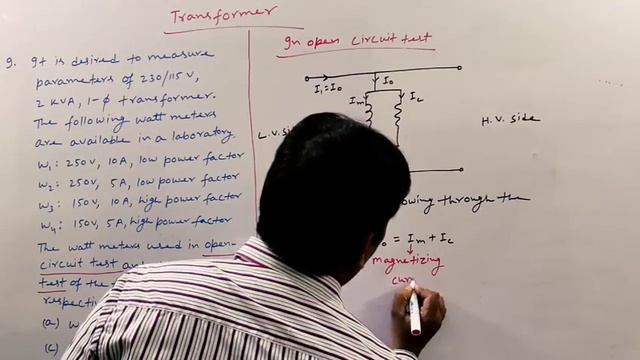 Transformer
9. It is desired to measure
parameters of 230/115 V,
2 KVA, 1-ϕ transformer.
The following watt meters
are available in a laboratory.
W₁: 250V, 10A, low power factor
W₂: 250V, 5A, low power factor
W₃: 150V, 10A, high power factor
W₄: 150V, 5A, high power factor
The watt meters used in open-
circuit test
test of the
respectiv
(a) W
(c)
In open circuit test
I₁=I₀
I₀
Iₘ
I꜀
L.V. side
H.V. side
owing through the
₀ = Iₘ + I꜀
magnetizing
cur